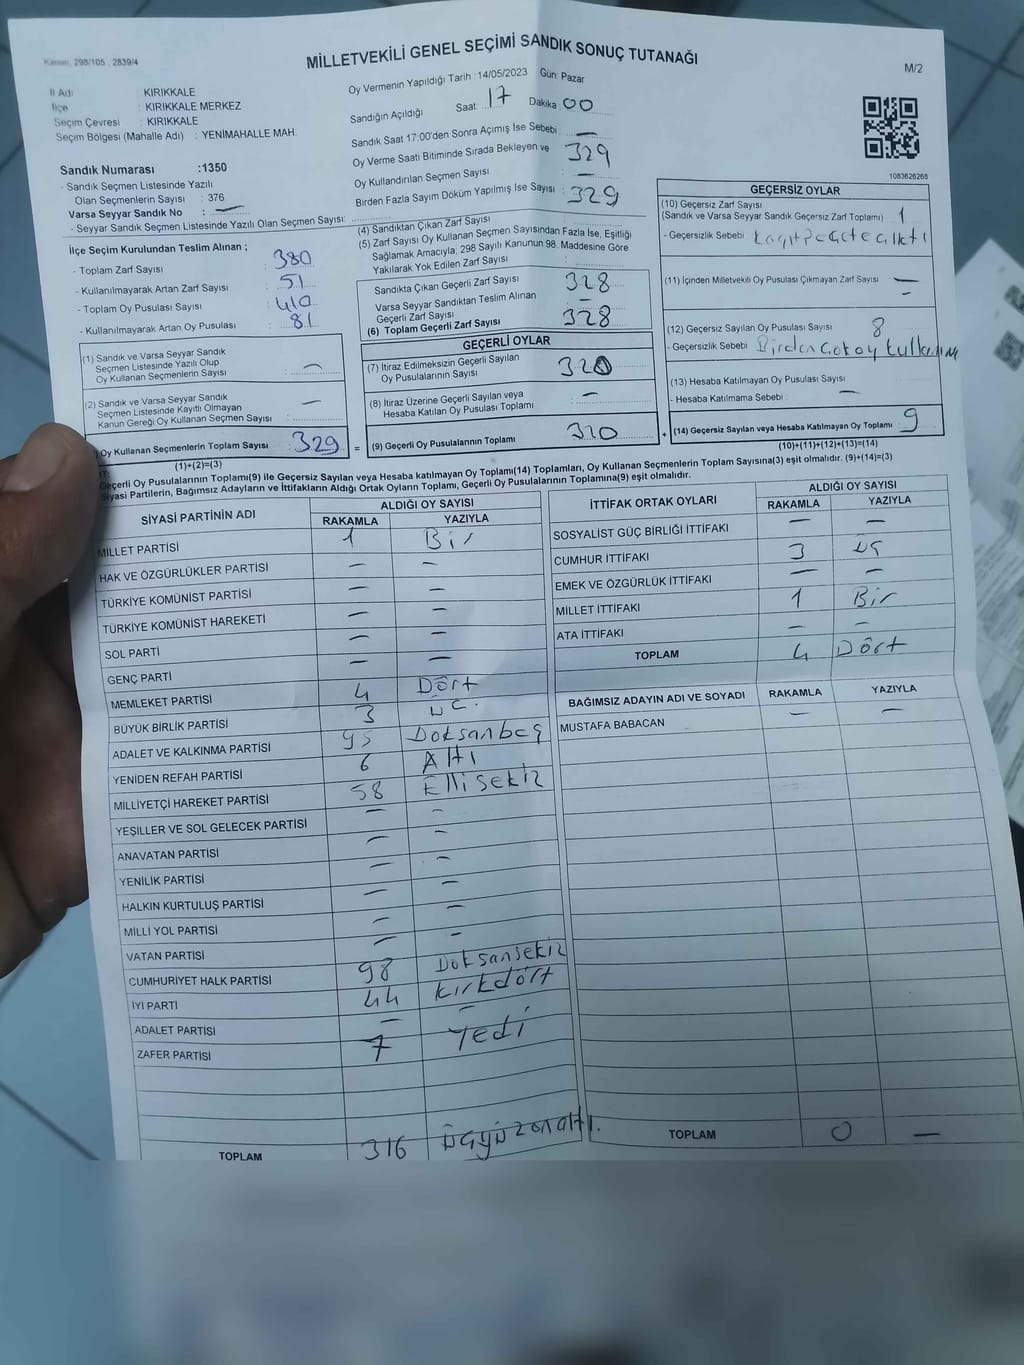 Kanun: 298/105 , 2839/4
MİLLETVEKİLİ GENEL SEÇİMİ SANDIK SONUÇ TUTANAĞI
M/2
İl Adı KIRIKKALE
İlçe : KIRIKKALE MERKEZ
Seçim Çevresi : KIRIKKALE
Seçim Bölgesi (Mahalle Adı) : YENİMAHALLE MAH.
Oy Vermenin Yapıldığı Tarih : 14/05/2023 Gün: Pazar
Sandığın Açıldığı Saat: 17 Dakika 00
Sandık Saat 17:00'den Sonra Açımış İse Sebebi: —
Oy Verme Saati Bitiminde Sırada Bekleyen ve
Oy Kullandırılan Seçmen Sayısı : 329
Birden Fazla Sayım Döküm Yapılmış İse Sayısı : —
329
1083628268
Sandık Numarası :1350
- Sandık Seçmen Listesinde Yazılı
Olan Seçmenlerin Sayısı : 376
Varsa Seyyar Sandık No : —
- Seyyar Sandık Seçmen Listesinde Yazılı Olan Seçmen Sayısı:
İlçe Seçim Kurulundan Teslim Alınan ;
- Toplam Zarf Sayısı : 380
- Kullanılmayarak Artan Zarf Sayısı : 51
- Toplam Oy Pusulası Sayısı : 410
- Kullanılmayarak Artan Oy Pusulası : 81
(1) Sandık ve Varsa Seyyar Sandık
Seçmen Listesinde Yazılı Olup
Oy Kullanan Seçmenlerin Sayısı : —
(2) Sandık ve Varsa Seyyar Sandık
Seçmen Listesinde Kayıtlı Olmayan
Kanun Gereği Oy Kullanan Seçmen Sayısı : —
Oy Kullanan Seçmenlerin Toplam Sayısı : 329
(1)+(2)=(3)
(4) Sandıktan Çıkan Zarf Sayısı :
(5) Zarf Sayısı Oy Kullanan Seçmen Sayısından Fazla İse, Eşitliği
Sağlamak Amacıyla; 298 Sayılı Kanunun 98. Maddesine Göre
Yakılarak Yok Edilen Zarf Sayısı :
Sandıkta Çıkan Geçerli Zarf Sayısı : 328
Varsa Seyyar Sandıktan Teslim Alınan
Geçerli Zarf Sayısı : —
(6) Toplam Geçerli Zarf Sayısı : 328
GEÇERLİ OYLAR
(7) İtiraz Edilmeksizin Geçerli Sayılan
Oy Pusulalarının Sayısı : 320
(8) İtiraz Üzerine Geçerli Sayılan veya
Hesaba Katılan Oy Pusulası Toplamı : —
= (9) Geçerli Oy Pusulalarının Toplamı 320 +
GEÇERSİZ OYLAR
(10) Geçersiz Zarf Sayısı
(Sandık ve Varsa Seyyar Sandık Geçersiz Zarf Toplamı) 1
- Geçersizlik Sebebi :
(11) İçinden Milletvekili Oy Pusulası Çıkmayan Zarf Sayısı : —
(12) Geçersiz Sayılan Oy Pusulası Sayısı : 8
- Geçersizlik Sebebi : Birden Çok oy kullanım
(13) Hesaba Katılmayan Oy Pusulası Sayısı :
- Hesaba Katılmama Sebebi : —
(14) Geçersiz Sayılan veya Hesaba Katılmayan Oy Toplamı : 9
(10)+(11)+(12)+(13)=(14)
Geçerli Oy Pusulalarının Toplamı(9) ile Geçersiz Sayılan veya Hesaba katılmayan Oy Toplamı(14) Toplamları, Oy Kullanan Seçmenlerin Toplam Sayısına(3) eşit olmalıdır. (9)+(14)=(3)
Siyasi Partilerin, Bağımsız Adayların ve İttifakların Aldığı Ortak Oyların Toplamı, Geçerli Oy Pusulalarının Toplamına(9) eşit olmalıdır.
SİYASİ PARTİNİN ADI ALDIĞI OY SAYISI
RAKAMLA YAZIYLA
MİLLET PARTİSİ 1 Bir
HAK VE ÖZGÜRLÜKLER PARTİSİ — —
TÜRKİYE KOMÜNİST PARTİSİ — —
TÜRKİYE KOMÜNİST HAREKETİ — —
SOL PARTİ — —
GENÇ PARTİ — —
MEMLEKET PARTİSİ 4 Dört
BÜYÜK BİRLİK PARTİSİ 3 ÜÇ
ADALET VE KALKINMA PARTİSİ 95 Doksanbeş
YENİDEN REFAH PARTİSİ 6 Altı
MİLLİYETÇİ HAREKET PARTİSİ 58 Ellisekiz
YEŞİLLER VE SOL GELECEK PARTİSİ — —
ANAVATAN PARTİSİ — —
YENİLİK PARTİSİ — —
HALKIN KURTULUŞ PARTİSİ — —
MİLLİ YOL PARTİSİ — —
VATAN PARTİSİ — —
CUMHURİYET HALK PARTİSİ 98 Doksansekiz
İYİ PARTİ 44 Kırkdört
ADALET PARTİSİ — —
ZAFER PARTİSİ 7 Yedi
TOPLAM 316 Üçyüzonaltı.
İTTİFAK ORTAK OYLARI ALDIĞI OY SAYISI
RAKAMLA YAZIYLA
SOSYALİST GÜÇ BİRLİĞİ İTTİFAKI — —
CUMHUR İTTİFAKI 3 üç
EMEK VE ÖZGÜRLÜK İTTİFAKI — —
MİLLET İTTİFAKI 1 Bir
ATA İTTİFAKI — —
TOPLAM 4 Dört
BAĞIMSIZ ADAYIN ADI VE SOYADI RAKAMLA YAZIYLA
MUSTAFA BABACAN — —
TOPLAM 0 —